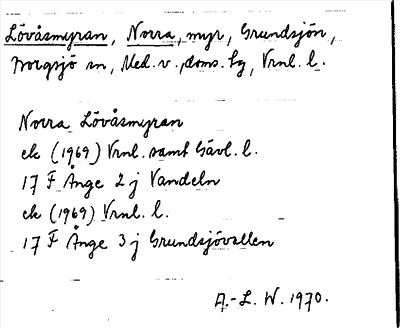 Lövåsmyran, Norra, myr, Grundsjön,
Borgsjö sn, Med. v. doms. hg, Vrnl. l.
Norra Lövåsmyran
ek (1969) Vrnl. samt Gävl. l.
17 F Ånge 2 j Vandeln
ek (1969) Vrnl. l.
17 F Ånge 3 j Grundsjövallen
A.-L. W. 1970.